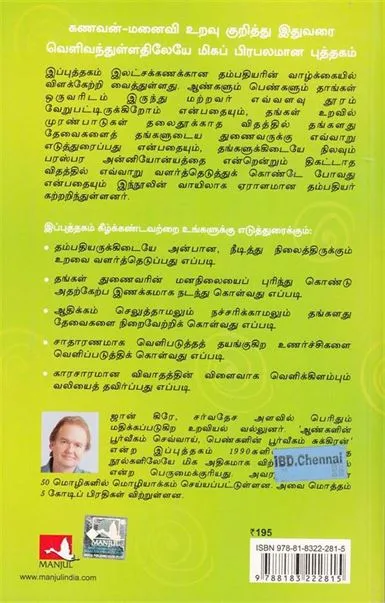 கணவன்-மனைவி உறவு குறித்து இதுவரை
வெளிவந்துள்ளதிலேயே மிகப் பிரபலமான புத்தகம்
இப்புத்தகம் இலட்சக்கணக்கான தம்பதியரின் வாழ்க்கையில்
விளக்கேற்றி வைத்துள்ளது. ஆண்களும் பெண்களும் தாங்கள்
ஒருவரிடம் இருந்து மற்றவர் எவ்வளவு தூரம்
வேறுபட்டிருக்கிறோம் என்பதையும், தங்கள் உறவில்
முரண்பாடுகள் தலைதூக்காத விதத்தில் தங்களது
தேவைகளைத் தங்களுடைய துணைவருக்கு எவ்வாறு
எடுத்துரைப்பது என்பதையும், தங்களுக்கிடையே நிலவும்
பரஸ்பர அன்னியோன்யத்தை என்றென்றும் திகட்டாத
விதத்தில் எவ்வாறு வளர்த்தெடுத்துக் கொண்டே போவது
என்பதையும் இந்நூலின் வாயிலாக ஏராளமான தம்பதியர்
கற்றறிந்துள்ளனர்.
இப்புத்தகம் கீழ்க்கண்டவற்றை உங்களுக்கு எடுத்துரைக்கும்:
• தம்பதியருக்கிடையே அன்பான, நீடித்து நிலைத்திருக்கும்
உறவை வளர்த்தெடுப்பது எப்படி
• தங்கள் துணைவரின் மனநிலையைப் புரிந்து கொண்டு
அதற்கேற்ப இணக்கமாக நடந்து கொள்வது எப்படி
• ஆதிக்கம் செலுத்தாமலும் நச்சரிக்காமலும் தங்களது
தேவைகளை நிறைவேற்றிக் கொள்வது எப்படி
• சாதாரணமாக வெளிபடுத்தத் தயங்குகிற உணர்ச்சிகளை
வெளிப்படுத்திக் கொள்வது எப்படி
• காரசாரமான விவாதத்தின் விளைவாக வெளிக்கிளம்பும்
வலியைத் தவிர்ப்பது எப்படி
ஜான் கிரே, சர்வதேச அளவில் பெரிதும்
மதிக்கப்படுகிற உறவியல் வல்லுனர். 'ஆண்களின்
பூர்வீகம் செவ்வாய், பெண்களின் பூர்வீகம் சுக்கிரன்'
என்ற இப்புத்தகம் 1990களின்
நூல்களிலேயே மிக அதிகமாக விற்
என்ற பெருமைக்குரியது. அவர
50 மொழிகளில் மொழியாக்கம் செய்யப்பட்டுள்ளன. அவை மொத்தம்
5 கோடிப் பிரதிகள் விற்றுள்ளன.
IBD,Chennai
MANJUL
www.manjulindia.com
₹195
ISBN 978-81-8322-281-5
9 788183 222815